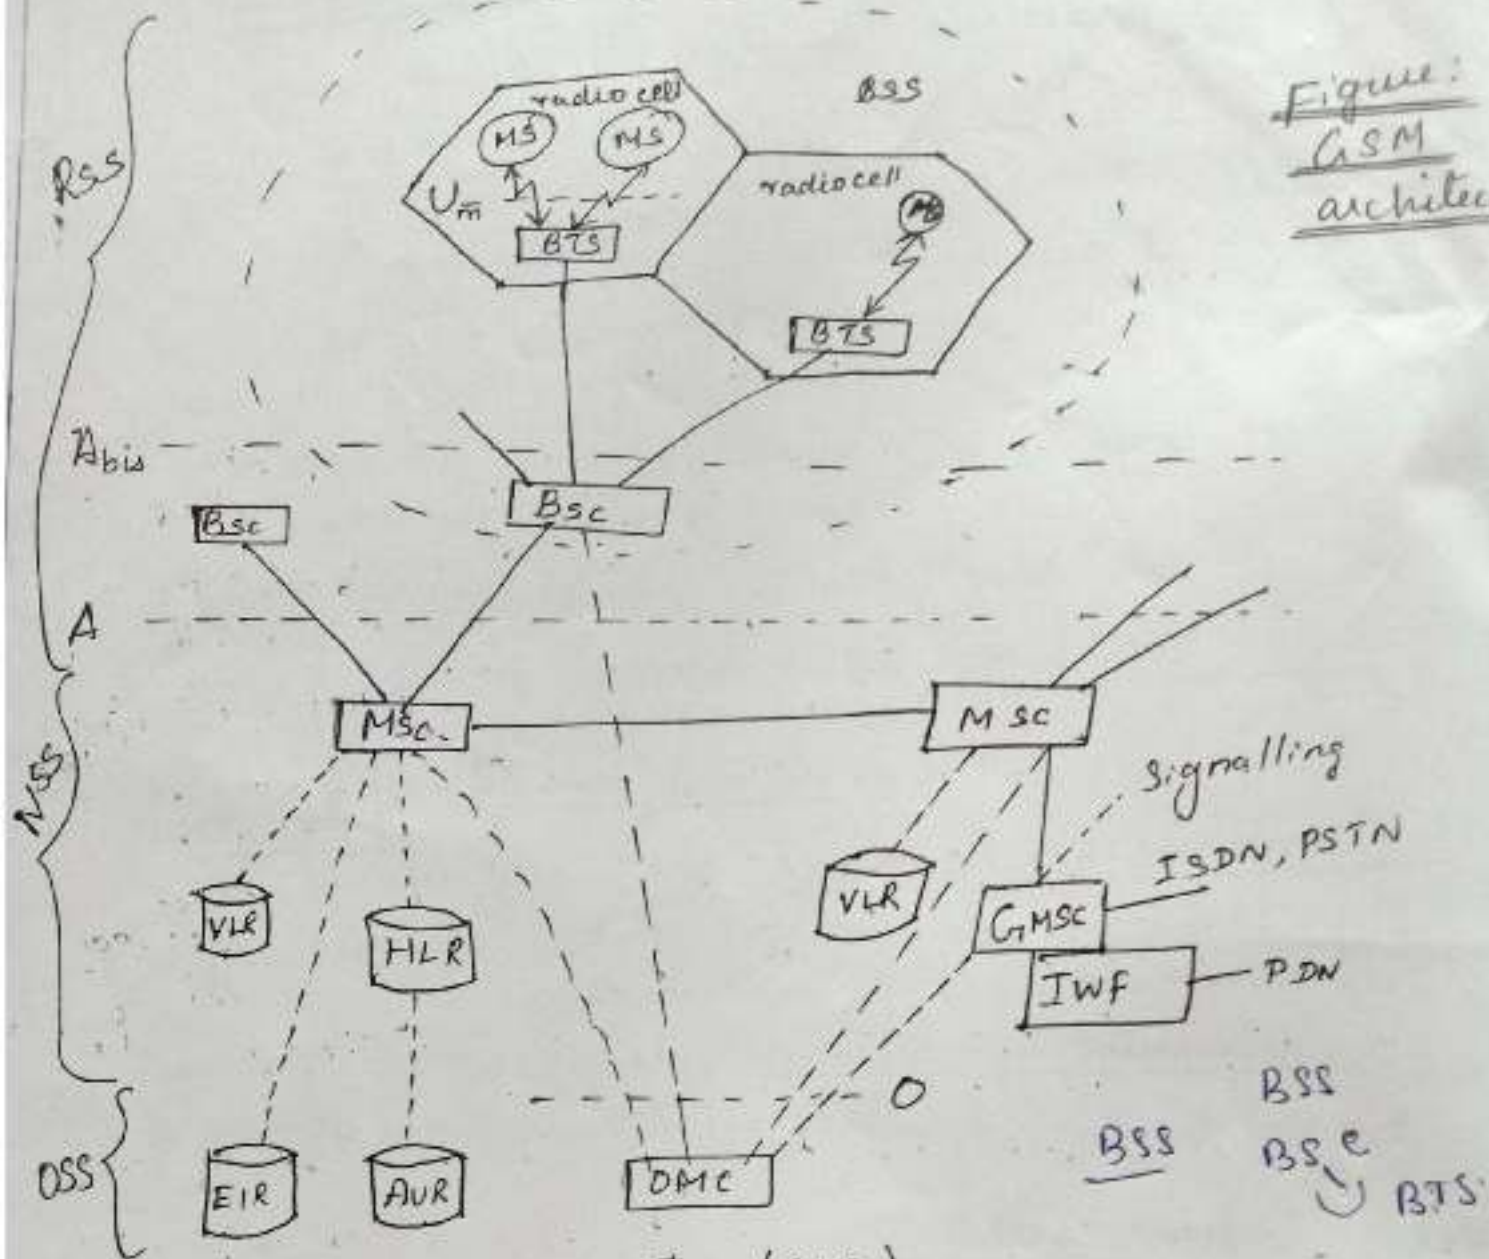 Figure:
GSM
architec
BSS
RSS
radio cell
MS
MS
radio cell
Um
BTS
BTS
Abis
BSC
BSC
A
MSC
MSC
NSS
Signalling
ISDN, PSTN
VLR
HLR
VLR
GMSC
IWF
PDN
O
OSS
EIR
AUR
OMC
BSS
BSS
BSC
BTS